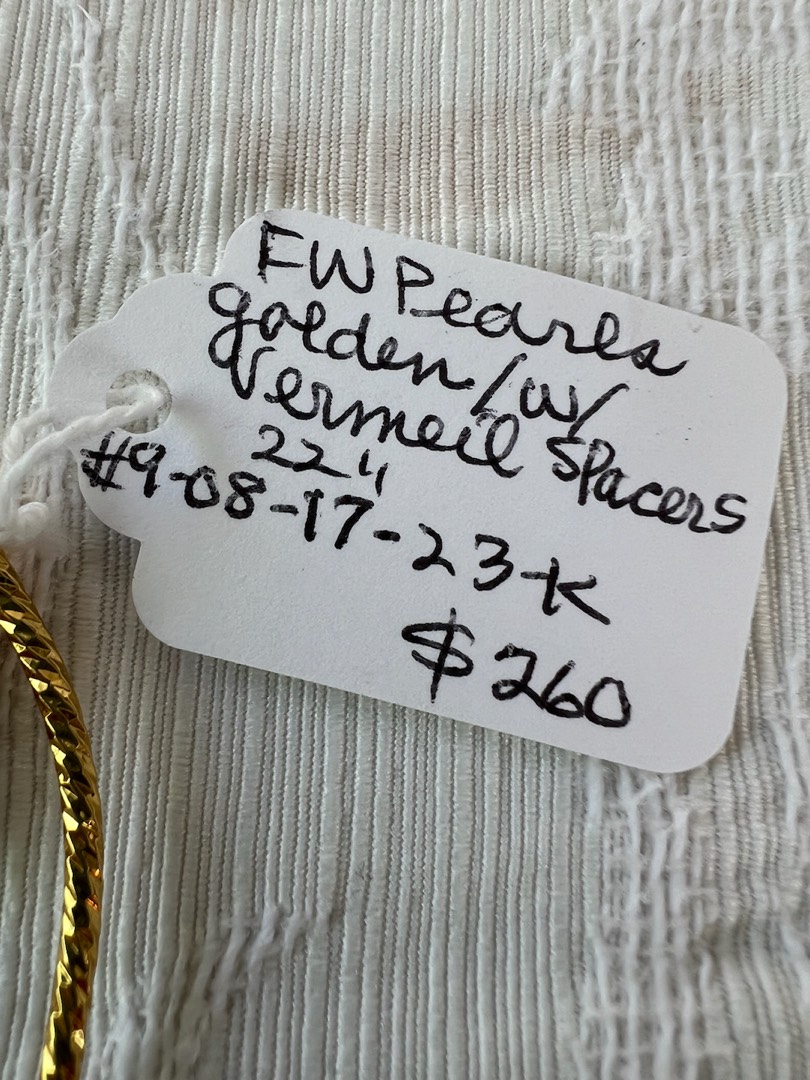 FW Pearls
golden/w/
Vermeil spacers
22"
#9-08-17-23-K
$260